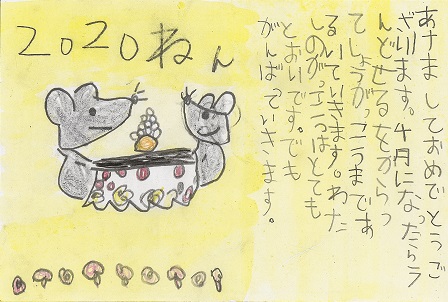 2020ねん
あけましておめでとうご
ざいます。4月になったらラ
んどせるをからっ
てしょうがっこうまであ
るいていきます。わた
しのがっこうはとても
とおいです。でも
がんばっていきます。